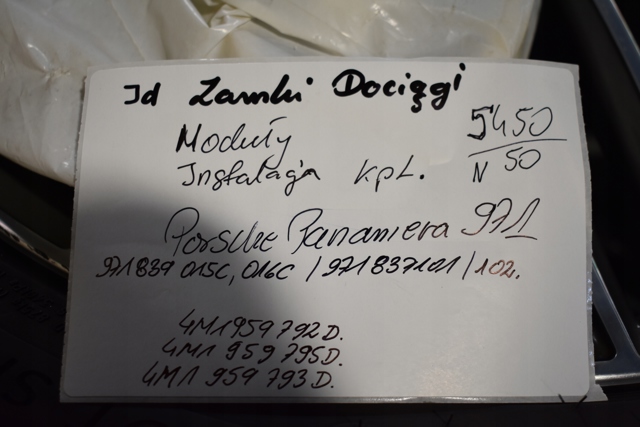 Jd Zamki Dociągi
Moduły
Instalacja kpl.
5450
N 50
Porsche Panamera 971
971839 015C, 016C / 971837101 / 102.
4M1959792D.
4M1 959 795D.
4M1 959 793D.